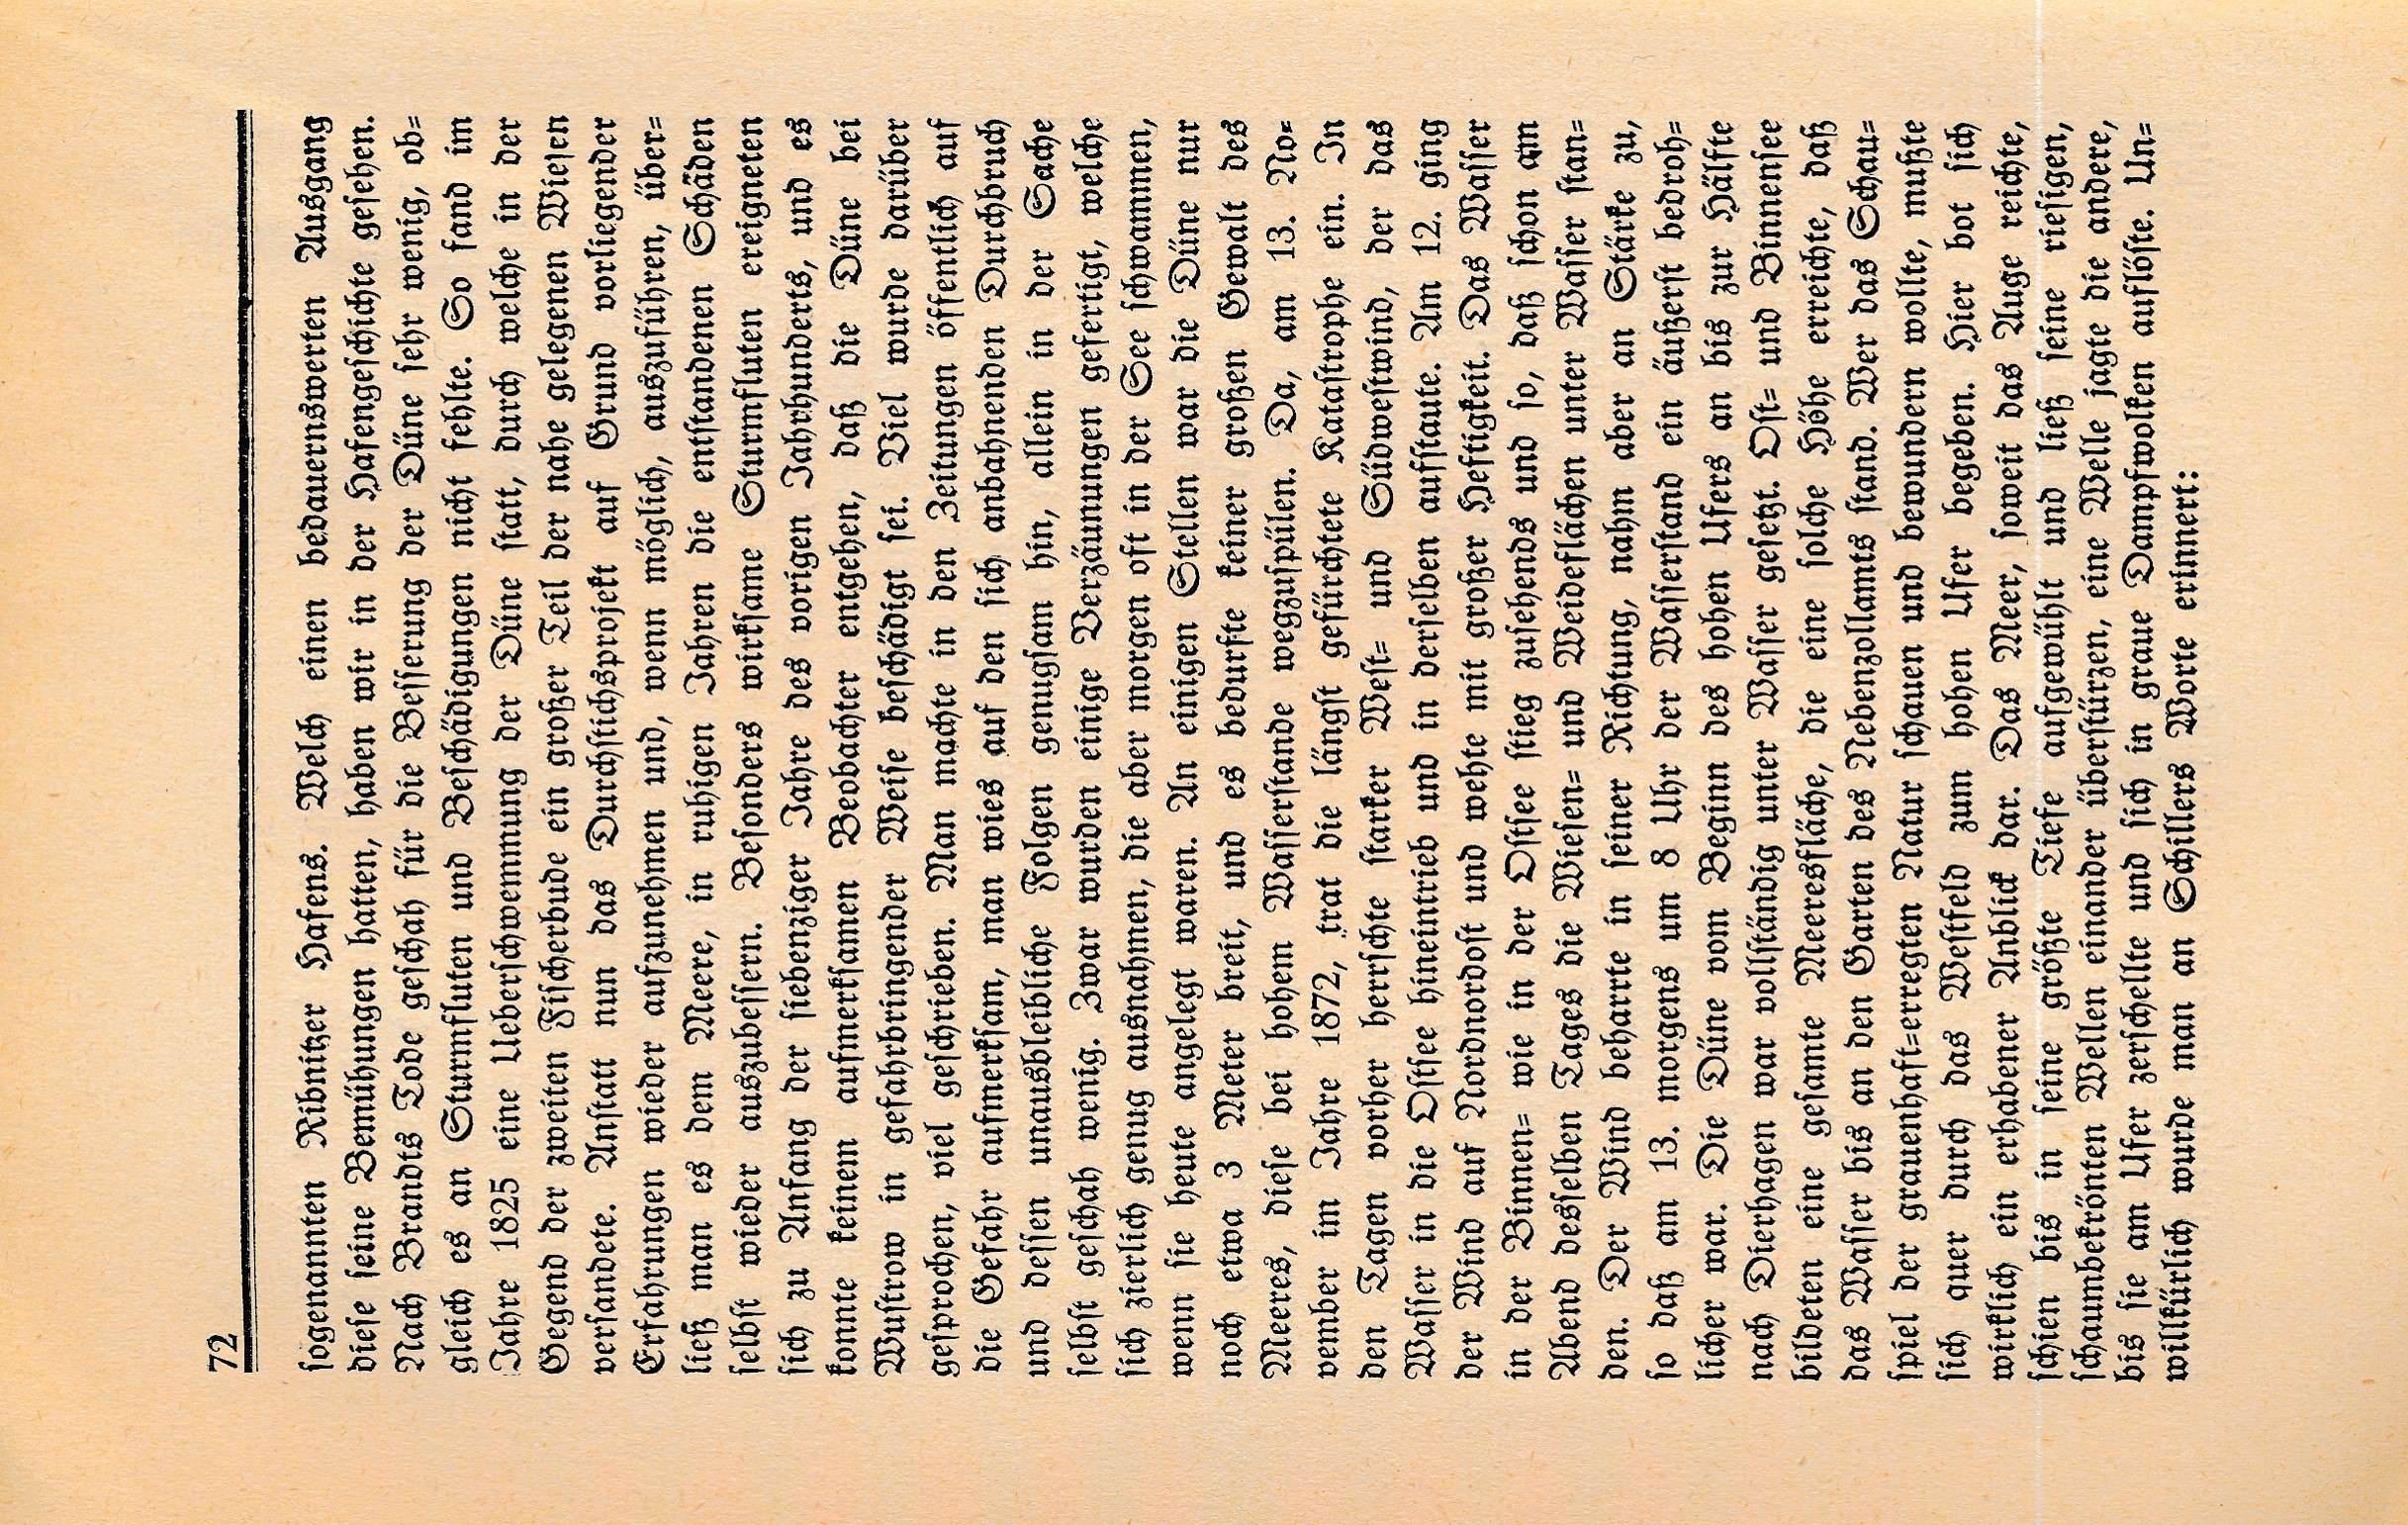 72
sogenannten Ribnitzer Hafens. Welch einen bedauernswerten Ausgang
diese seine Bemühungen hatten, haben wir in der Hafengeschichte gesehen.
Nach Brandts Tode geschah für die Besserung der Düne sehr wenig, ob=
gleich es an Sturmfluten und Beschädigungen nicht fehlte. So fand im
Jahre 1825 eine Ueberschwemmung der Düne statt, durch welche in der
Gegend der zweiten Fischerbude ein großer Teil der nahe gelegenen Wiesen
versandete. Anstatt nun das Durchstichsprojekt auf Grund vorliegender
Erfahrungen wieder aufzunehmen und, wenn möglich, auszuführen, über=
ließ man es dem Meere, in ruhigen Jahren die entstandenen Schäden
selbst wieder auszubessern. Besonders wirksame Sturmfluten ereigneten
sich zu Anfang der siebenziger Jahre des vorigen Jahrhunderts, und es
konnte keinem aufmerksamen Beobachter entgehen, daß die Düne bei
Wustrow in gefahrbringender Weise beschädigt sei. Viel wurde darüber
gesprochen, viel geschrieben. Man machte in den Zeitungen öffentlich auf
die Gefahr aufmerksam, man wies auf den sich anbahnenden Durchbruch
und dessen unausbleibliche Folgen genugsam hin, allein in der Sache
selbst geschah wenig. Zwar wurden einige Verzäunungen gefertigt, welche
sich zierlich genug ausnahmen, die aber morgen oft in der See schwammen,
wenn sie heute angelegt waren. An einigen Stellen war die Düne nur
noch etwa 3 Meter breit, und es bedurfte keiner großen Gewalt des
Meeres, diese bei hohem Wasserstande wegzuspülen. Da, am 13. No=
vember im Jahre 1872, trat die längst gefürchtete Katastrophe ein. In
den Tagen vorher herrschte starker West= und Südwestwind, der das
Wasser in die Ostsee hineintrieb und in derselben aufstaute. Am 12. ging
der Wind auf Nordnordost und wehte mit großer Heftigkeit. Das Wasser
in der Binnen= wie in der Ostsee stieg zusehends und so, daß schon am
Abend desselben Tages die Wiesen= und Weideflächen unter Wasser stan=
den. Der Wind beharrte in seiner Richtung, nahm aber an Stärke zu,
so daß am 13. morgens um 8 Uhr der Wasserstand ein äußerst bedroh=
licher war. Die Düne vom Beginn des hohen Ufers an bis zur Hälfte
nach Dierhagen war vollständig unter Wasser gesetzt. Ost= und Binnensee
bildeten eine gesamte Meeresfläche, die eine solche Höhe erreichte, daß
das Wasser bis an den Garten des Nebenzollamts stand. Wer das Schau=
spiel der grauenhaft=erregten Natur schauen und bewundern wollte, mußte
sich quer durch das Westfeld zum hohen Ufer begeben. Hier bot sich
wirklich ein erhabener Anblick dar. Das Meer, soweit das Auge reichte,
schien bis in seine größte Tiefe aufgewühlt und ließ seine riesigen,
schaumbekrönten Wellen einander überstürzen, eine Welle jagte die andere,
bis sie am Ufer zerschellte und sich in graue Dampfwolken auflöste. Un=
willkürlich wurde man an Schillers Worte erinnert: